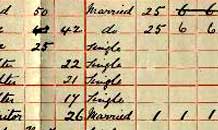 50 Married 25 6 6
42 do 25 6 6
25 Single
22 Single
21 Single
17 Single
26 Married 1 1 1